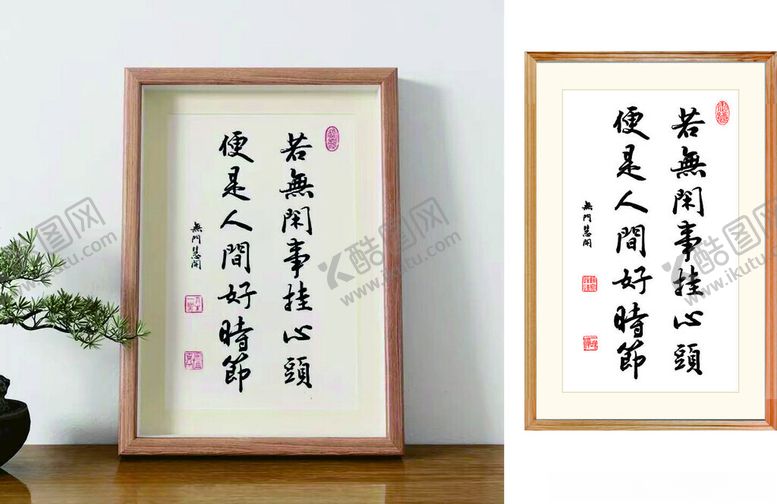 若無閑事挂心頭
便是人間好時節
無門慧開
若無閑事挂心頭
便是人間好時節
無門慧開
酷图网
www.ikutu.com
酷图网
www.ikutu.com
酷图网
www.ikutu.com